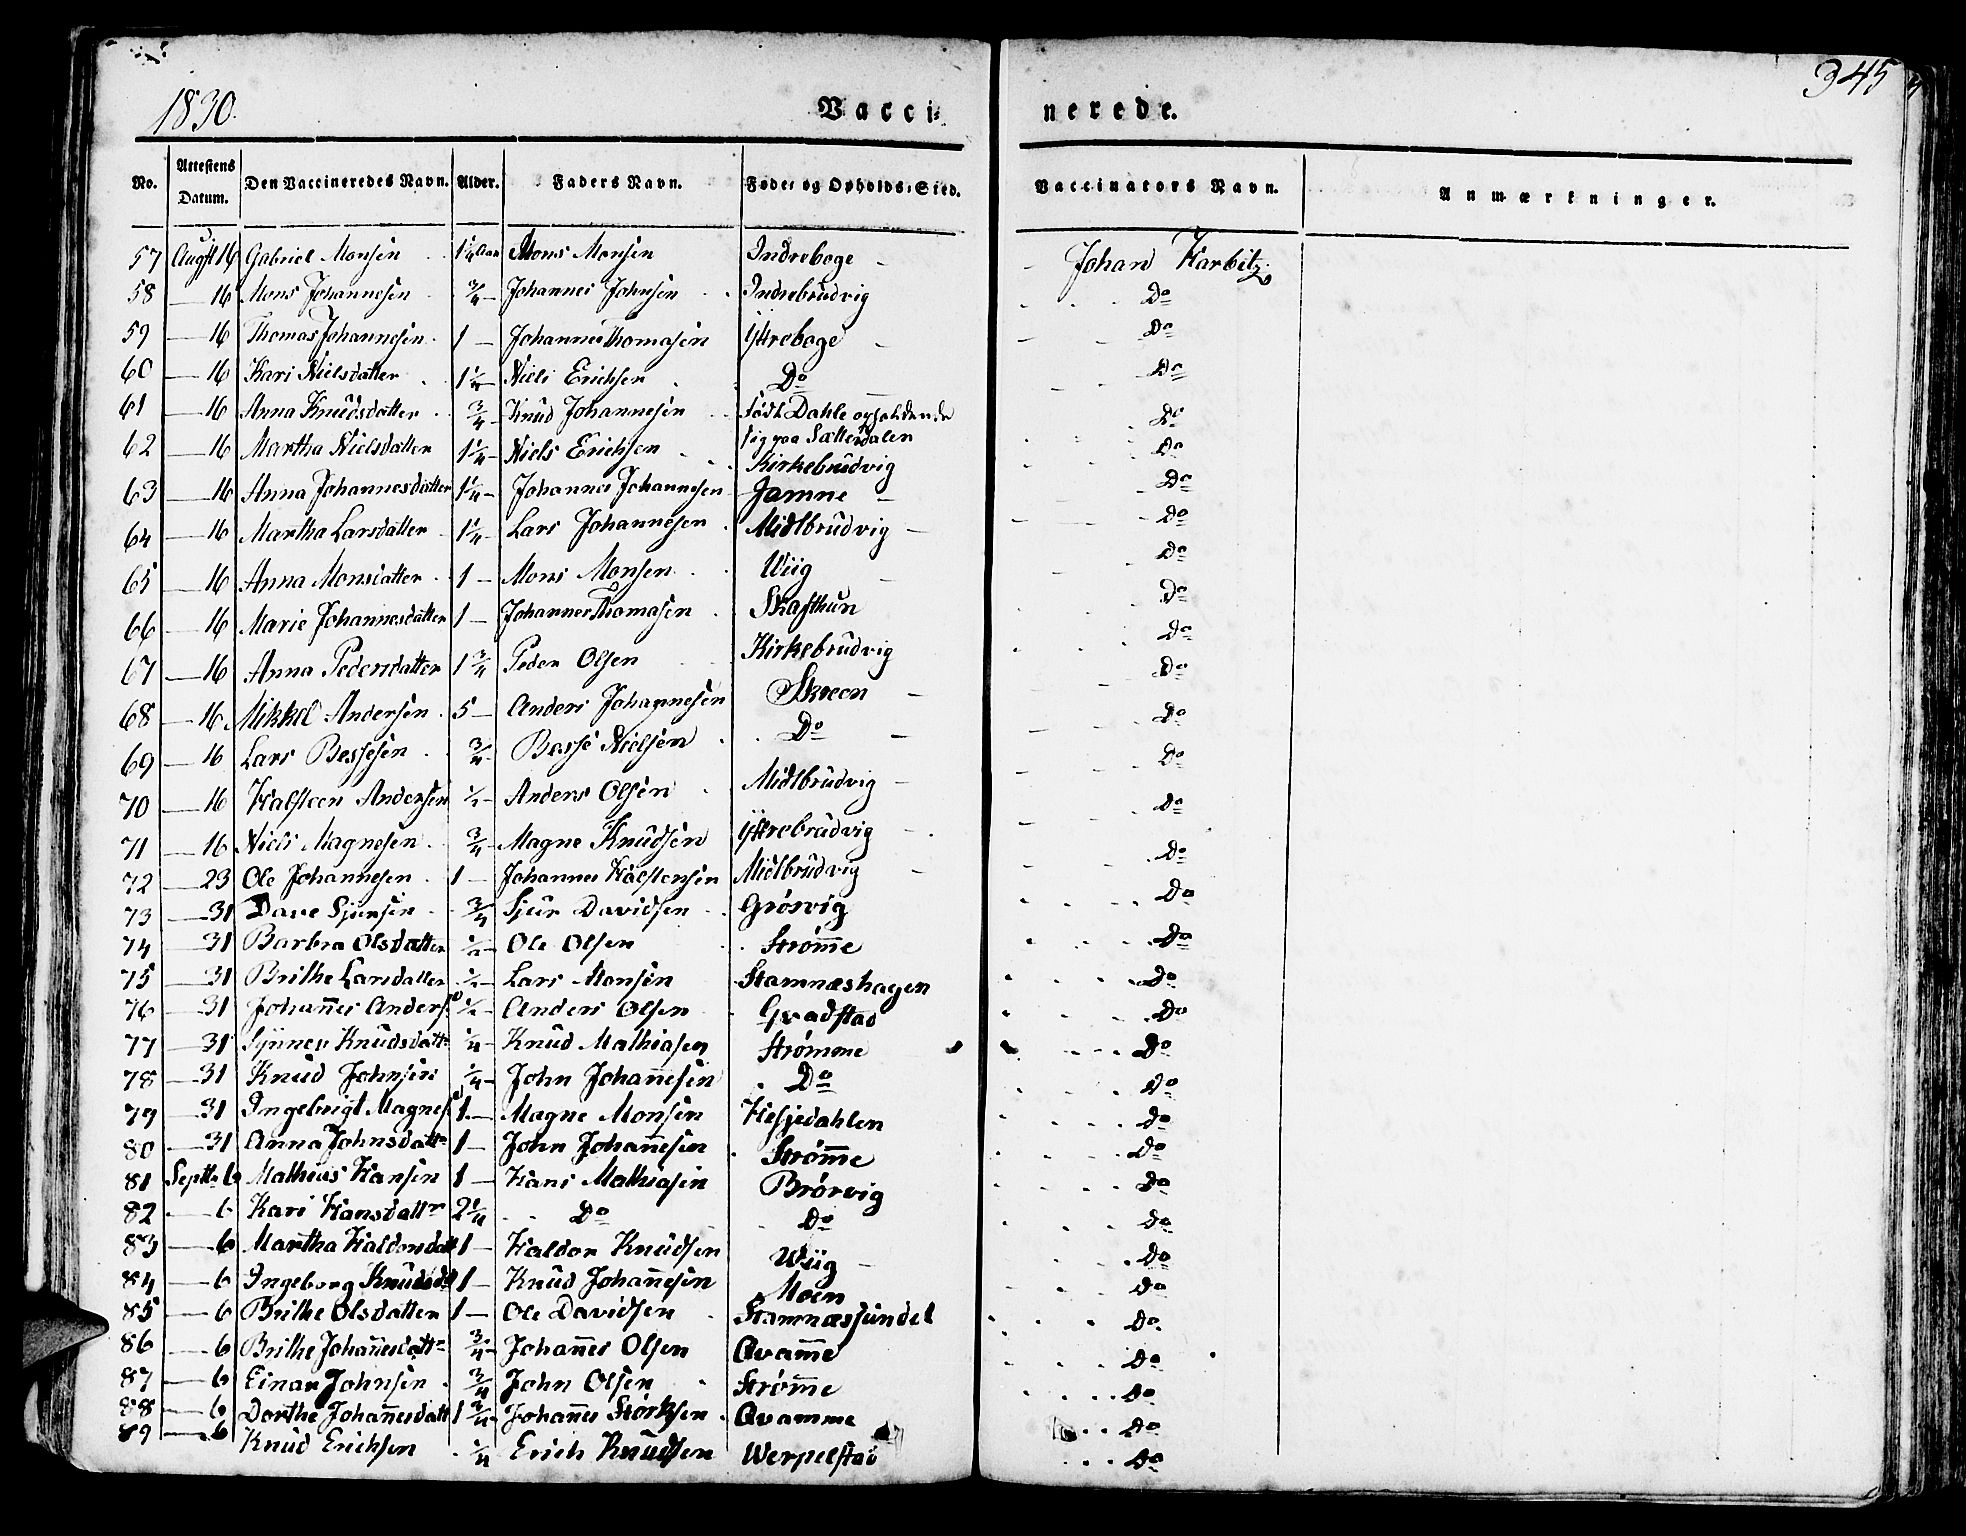 1830.
Vacci=
nerede.
345
No. Attestens Datum. Den Vaccineredes Navn. Alder. Faders Navn. Føde= og Opholds=Sted. Vaccinators Navn. Anmærkninger.
57 Augst 16 Gabriel Monsen 1 1/4 Aar Mons Monsen Indreboge Johan Harbitz.
58 — 16 Mons Johannesen 3/4 — Johannes Johnsen Indrebrudvig Do
59 — 16 Thomas Johannesen 1 — Johannes Thomasen Ytreboge Do
60 — 16 Kari Nielsdatter 1 1/4 — Niels Erichsen Do Do
61 — 16 Anna Knudsdatter 3/4 — Knud Johannesen Født Dahle opholdende Do
sig paa Sætterdalen
62 — 16 Martha Nielsdatter 1 1/4 — Niels Erichsen Kirkebrudvig Do
63 — 16 Anna Johannesdatter 1 1/4 — Johannes Johannesen Jamne Do
64 — 16 Martha Larsdatter 1 1/4 Lars Johannesen Midlbrudvig Do
65 — 16 Anna Monsdatter 1 — Mons Monsen Wiig Do
66 — 16 Marie Johannesdatter 1 — Johannes Thomasen Skafthun Do
67 — 16 Anna Pedersdatter 1 3/4 Peder Olsen Kirkebrudvig Do
68 — 16 Mikkel Andersen 5 — Anders Johannesen Skreen Do
69 — 16 Lars Bessesen 3/4 — Besse Nielsen Do Do
70 — 16 Halsteen Andersen 1/2 — Anders Olsen Midlbrudvig Do
71 — 16 Niels Magnesen 3/4 — Magne Knudsen Ytrebrudvig Do
72 — 23 Ole Johannesen 1 — Johannes Halstensen Midlbrudvig Do
73 — 31 Dave Sjursen 3/4 Sjur Davidsen Grøsvig Do
74 — 31 Barbra Olsdatter 1/2 — Ole Olsen Strøm̅e Do
75 — 31 Brithe Larsdatter 1/2 — Lars Monsen Stamneshagen Do
76 — 31 Johan̅es Anders. 1/2 — Anders Olsen Gradstad Do
77 — 31 Synnev Knudsdatt. 1/4 — Knud Mathiasen Strømme Do
78 — 31 Knud Johnsen 1/4 — John Johan̅esen Do Do
79 — 31 Ingebrigt Magnes. 1 — Magne Monsen Hesjedahlen Do
80 — 31 Anna Johnsdatt. 1 — John Johan̅esen Strøm̅e Do
81 Septbr 6 Mathias Hansen 1 — Hans Mathiasen Brørvig Do
82 — 6 Kari Hansdattr 2 1/4 Do Do Do
83 — 6 Martha Haldorsdatt 1 — Haldor Knudsen Wiig Do
84 — 6 Ingeborg Knudsdt 1 — Knud Johan̅esen Moen Do
85 — 6 Brithe Olsdatter 1 — Ole Davidsen Stamnessundet Do
86 — 6 Brithe Johan̅esdattr 3/4 — Johan̅es Olsen Qvam̅e Do
87 — 6 Einar Johnsen 3/4 John Olsen Strøm̅e Do
88 — 6 Dorthe Johan̅esdatt 1 3/4 — Johan̅es Størksen Qvamme Do
89 — 6 Knud Erichsen 1/4 Erich Knudsen Werpelstad Do